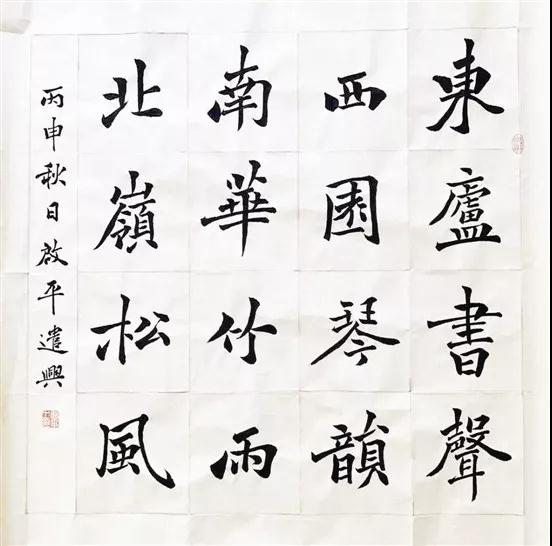 東廬書聲
西園琴韻
南華竹雨
北嶺松風
丙申秋日啟平遣興